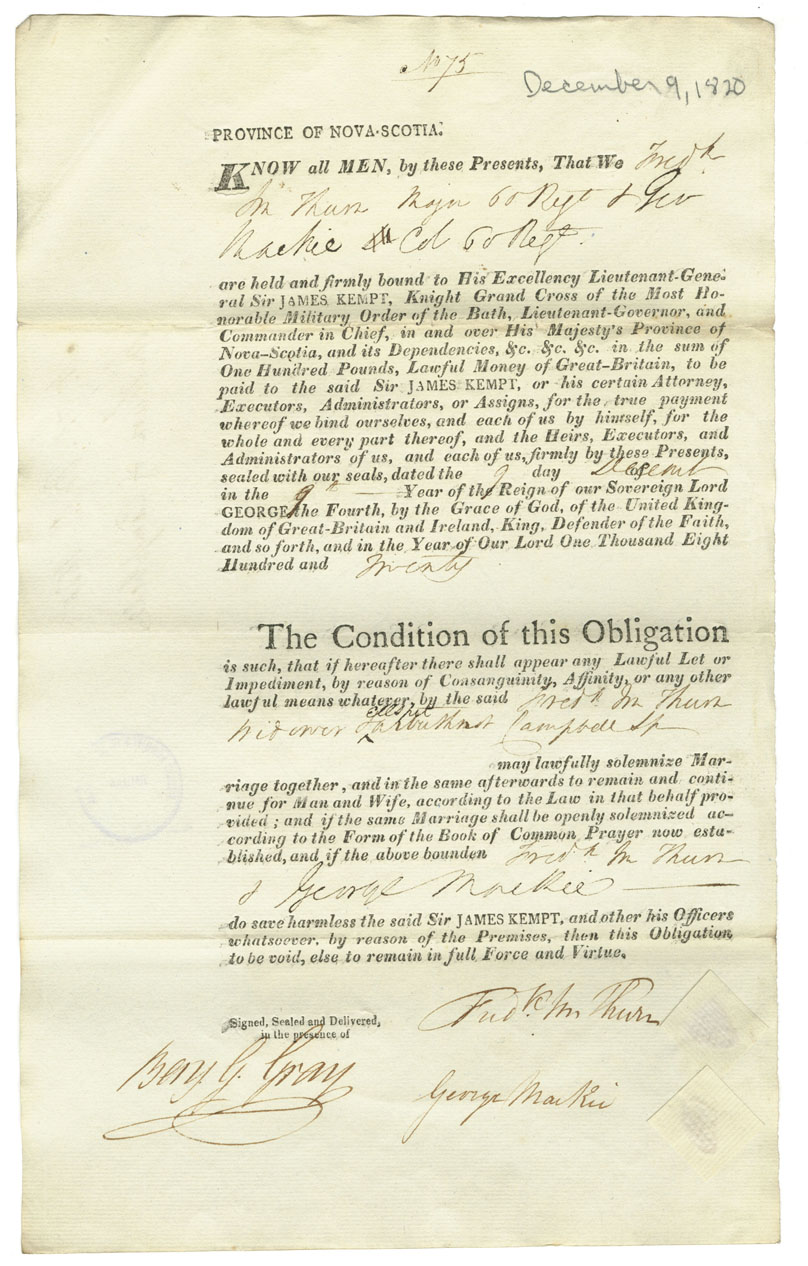 No 75
December 9, 1820
PROVINCE OF NOVA-SCOTIA.
KNOW all MEN, by these Presents, That We Fredk
Im Thurn Major 60 Regt & Geo
Mackie Col 60 Regt.
are held and firmly bound to His Excellency Lieutenant-Gene-
ral Sir JAMES KEMPT, Knight Grand Cross of the Most Ho-
norable Military Order of the Bath, Lieutenant-Governor, and
Commander in Chief, in and over His Majesty's Province of
Nova-Scotia, and its Dependencies, &c. &c. &c. in the sum of
One Hundred Pounds, Lawful Money of Great-Britain, to be
paid to the said Sir JAMES KEMPT, or his certain Attorney,
Executors, Administrators, or Assigns, for the true payment
whereof we bind ourselves, and each of us by himself, for the
whole and every part thereof, and the Heirs, Executors, and
Administrators of us, and each of us, firmly by these Presents,
sealed with our seals, dated the 9 day
in the Year of the Reign of our Sovereign Lord
GEORGE the Fourth, by the Grace of God, of the United King-
dom of Great-Britain and Ireland, King, Defender of the Faith,
and so forth, and in the Year of Our Lord One Thousand Eight
Hundred and Twenty
The Condition of this Obligation
is such, that if hereafter there shall appear any Lawful Let or
Impediment, by reason of Consanguinity, Affinity, or any other
lawful means whatever, by the said Fredk Im Thurn
Widower Arbuthnot Campbell Sp
may lawfully solemnize Mar-
riage together, and in the same afterwards to remain and conti-
nue for Man and Wife, according to the Law in that behalf pro-
vided; and if the same Marriage shall be openly solemnized ac-
cording to the Form of the Book of Common Prayer now esta-
blished, and if the above bounden Fredk Im Thurn
& George Mackie
do save harmless the said Sir JAMES KEMPT, and other his Officers
whatsoever, by reason of the Premises, then this Obligation
to be void, else to remain in full Force and Virtue.
Signed, Sealed and Delivered,
in the presence of
Fredk Im Thurn
Benj G. Gray
George Mackie